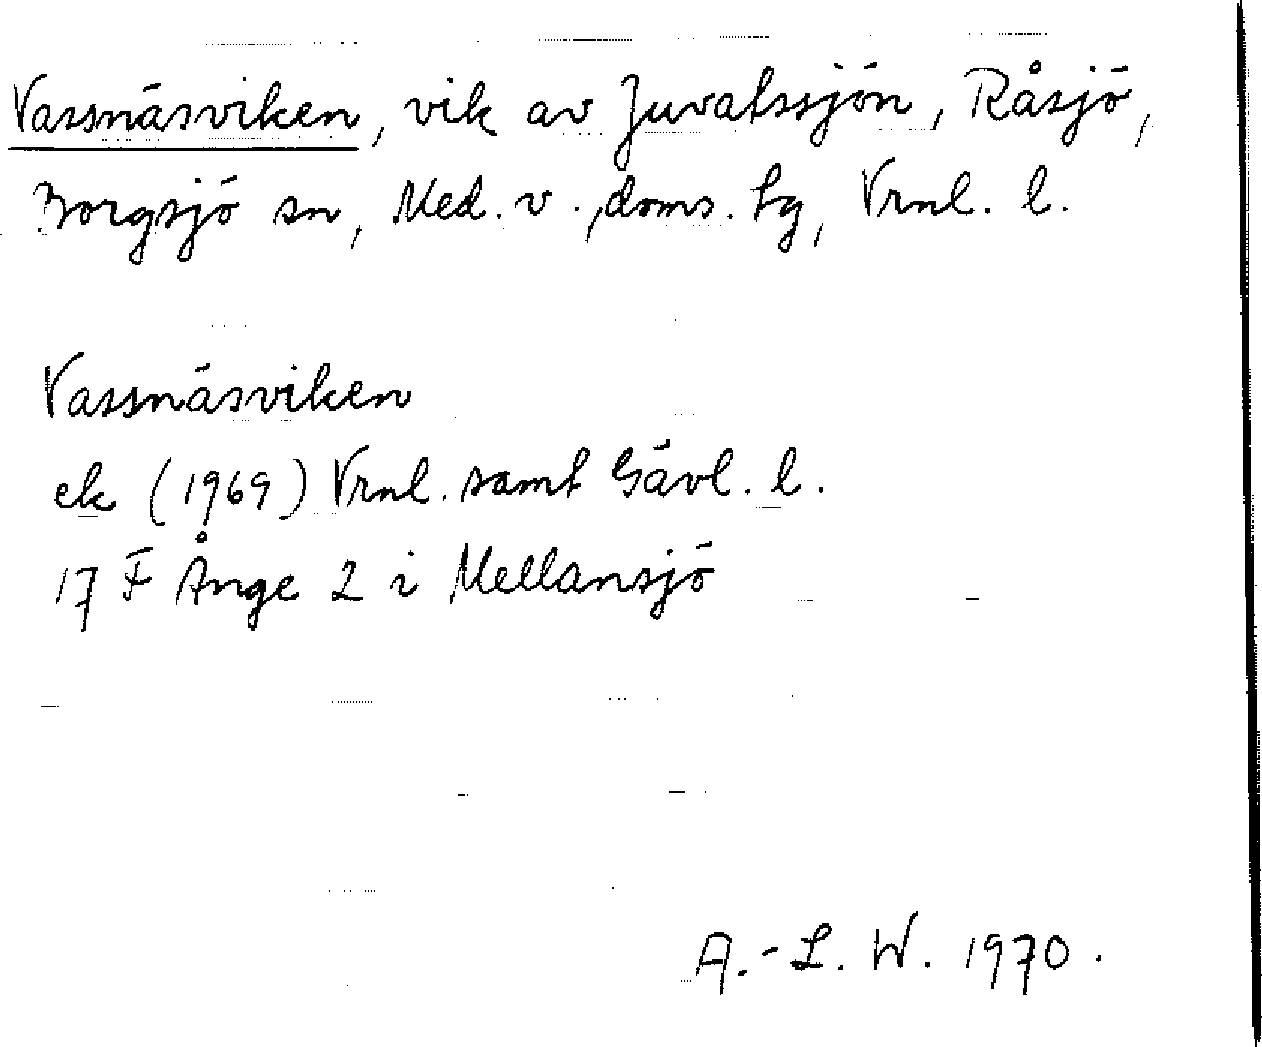 Vassnäsviken, vik av Juvatssjön, Råsjö,
Borgsjö sn, Med. v., doms. tg, Vrnl. l.
Vassnäsviken
ek (1969) Vrnl. samt Gävl. l.
17 F Ånge 2 i Mellansjö
A.-L. W. 1970.